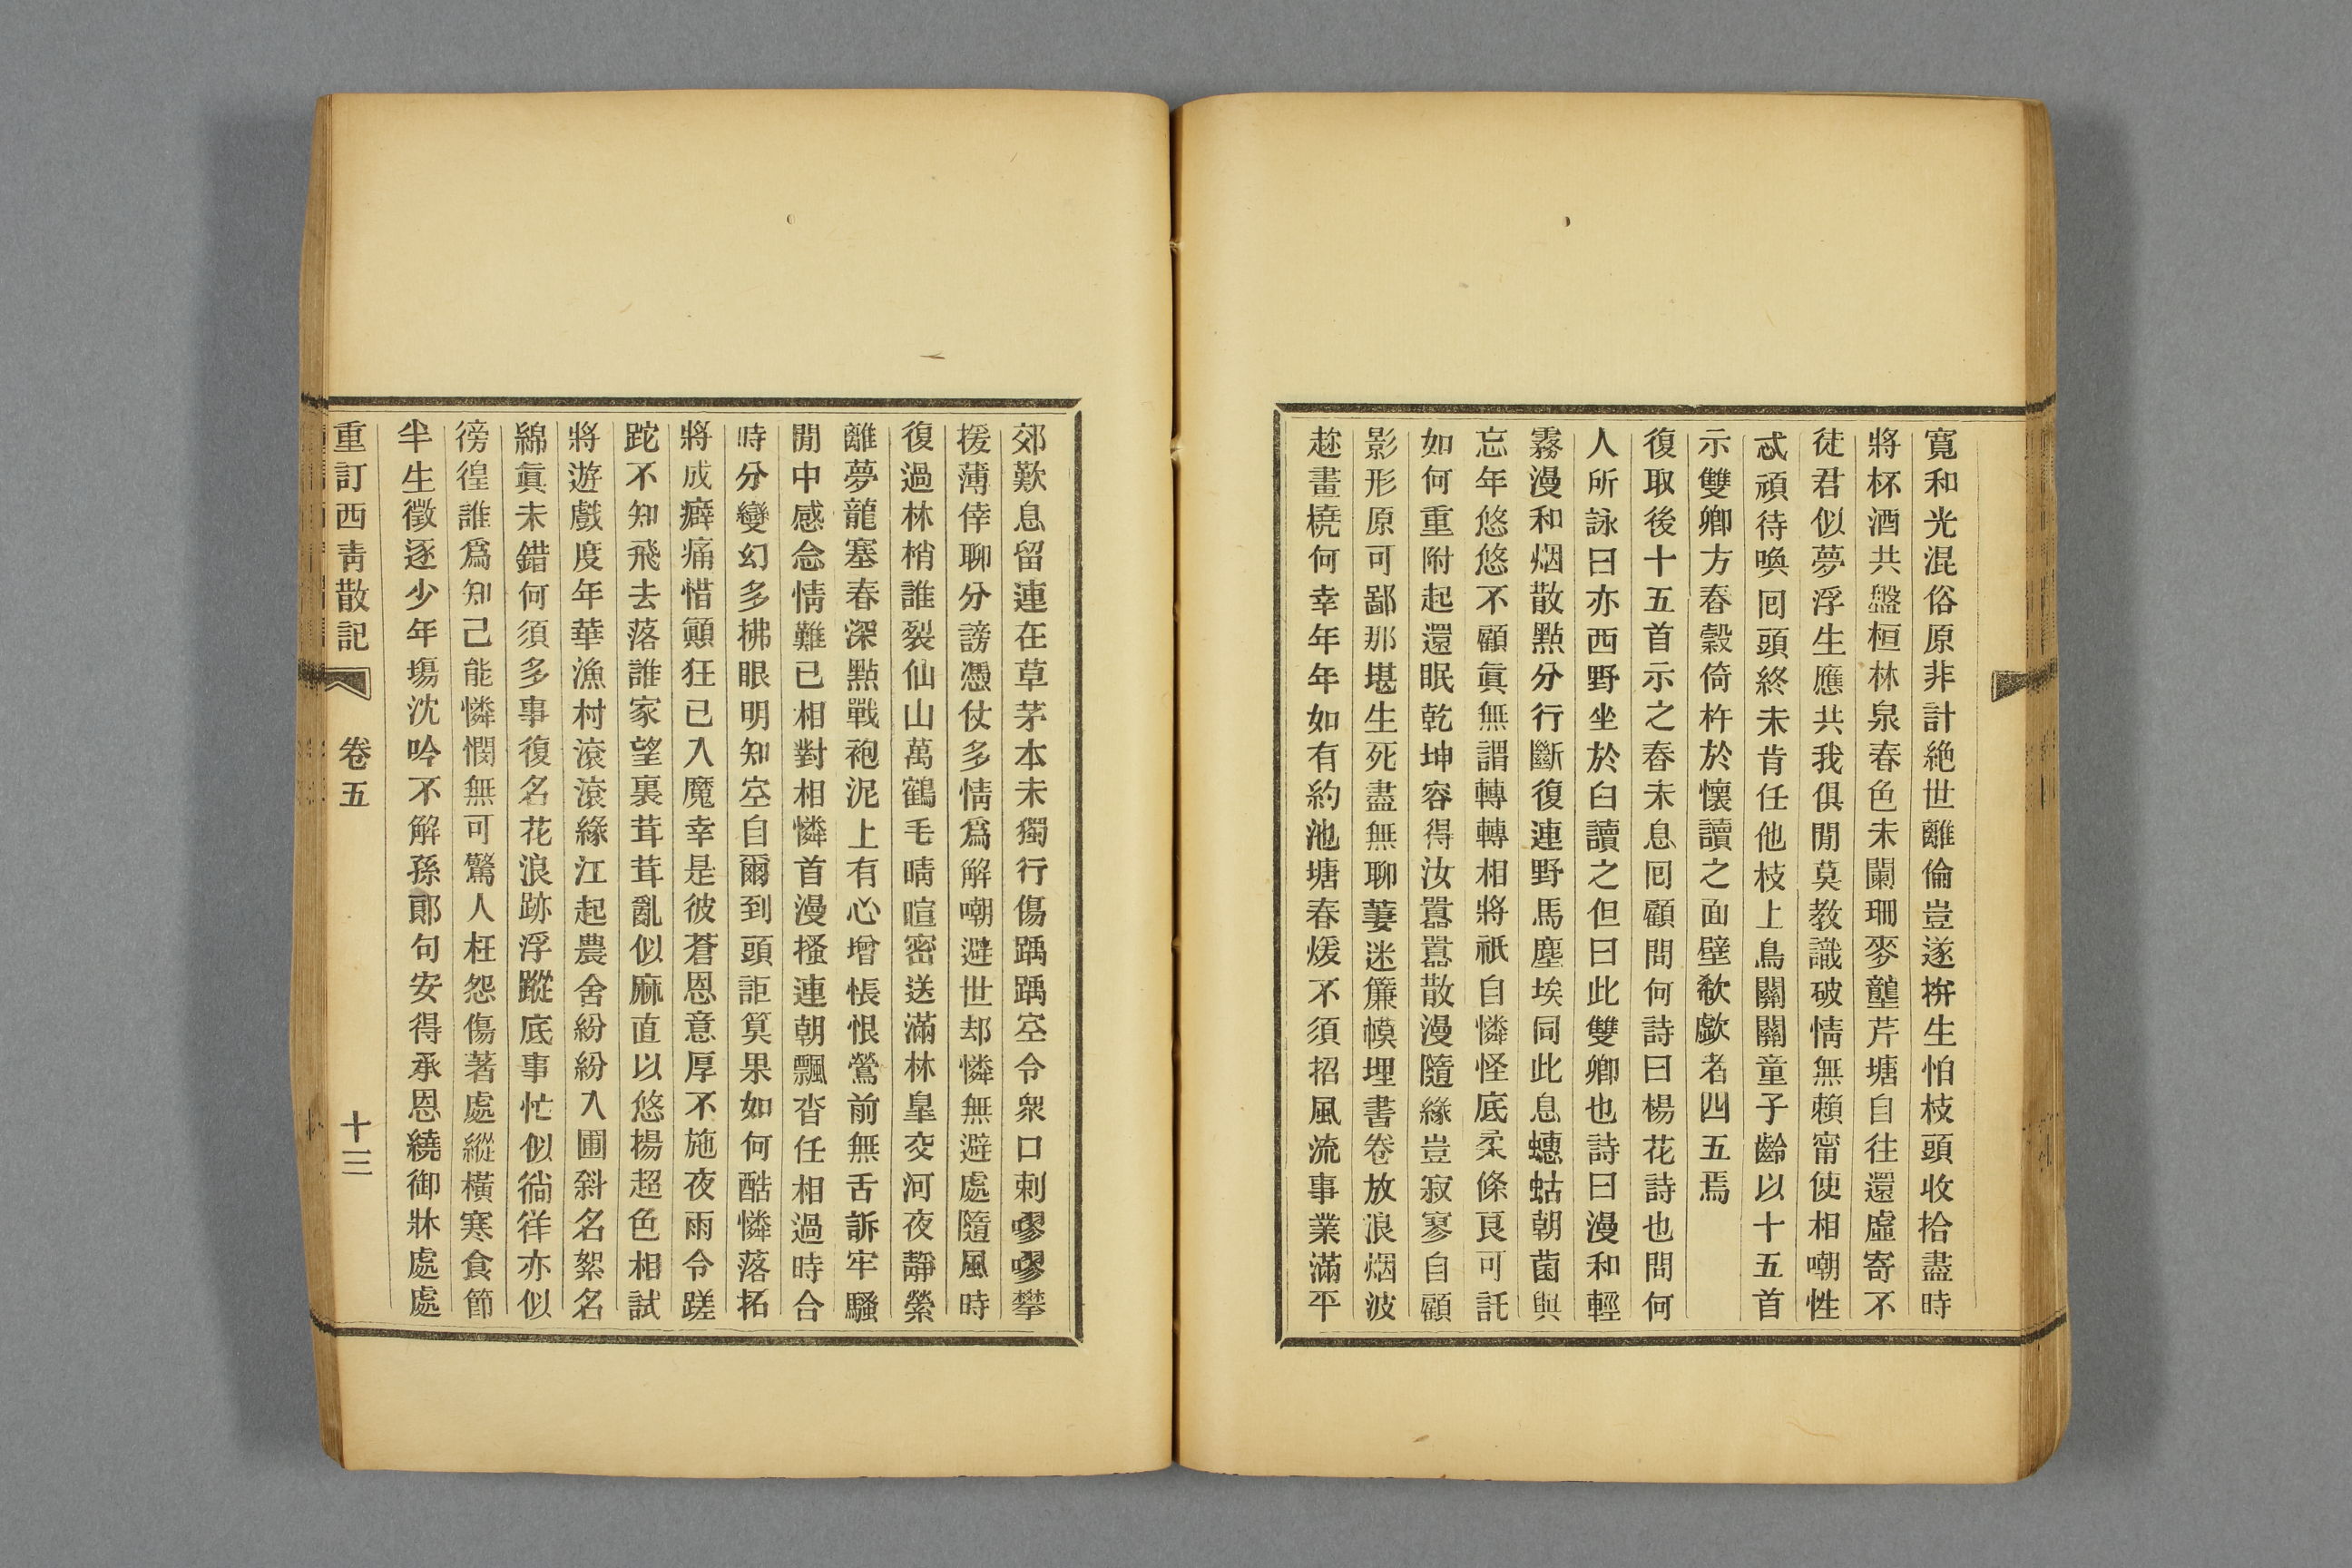 寬和光混俗原非計絶世離倫豈遂拚生怕枝頭收拾盡時
將杯酒共盤桓林泉春色未闌珊麥壟芹塘自往還虛寄不
徒君似夢浮生應共我俱閒莫教識破情無賴甯使相嘲性
忒頑待喚囘頭終未肯任他枝上鳥關關童子齡以十五首
示雙卿方舂穀倚杵於懷讀之面壁欷歔者四五焉
復取後十五首示之舂未息囘顧問何詩曰楊花詩也問何
人所詠曰亦西野坐於臼讀之但曰此雙卿也詩曰漫和輕
霧漫和烟散點分行斷復連野馬塵埃同此息蟪蛄朝菌與
忘年悠悠不顧眞無謂轉轉相將祇自憐怪底柔條良可託
如何重附起還眠乾坤容得汝囂囂散漫隨緣豈寂寥自顧
影形原可鄙那堪生死盡無聊萋迷簾幙埋書卷放浪烟波
趂畫橈何幸年年如有約池塘春煖不須招風流事業滿平
郊歎息留連在草茅本未獨行傷踽踽空令衆口刺嘐嘐攀
援薄倖聊分謗憑仗多情爲解嘲避世却憐無避處隨風時
復過林梢誰裂仙山萬鶴毛晴暄密送滿林臯交河夜靜縈
離夢龍塞春深點戰袍泥上有心增悵恨鶯前無舌訴牢騷
閒中感念情難已相對相憐首漫搔連朝飄沓任相過時合
時分變幻多拂眼明知空自爾到頭詎算果如何酷憐落拓
將成癖痛惜顚狂已入魔幸是彼蒼恩意厚不施夜雨令蹉
跎不知飛去落誰家望裏茸茸亂似麻直以悠揚超色相試
將遊戲度年華漁村滾滾緣江起農舍紛紛入圃斜名絮名
綿眞未錯何須多事復名花浪跡浮蹤底事忙似徜徉亦似
徬徨誰爲知己能憐憫無可驚人枉怨傷著處縱橫寒食節
半生徵逐少年塲沈吟不解孫郞句安得承恩繞御牀處處
重訂西靑散記 卷五 十三